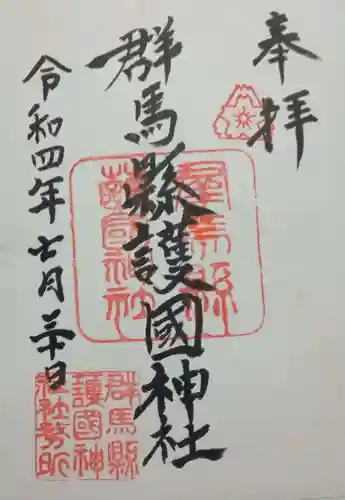 奉拝
群馬縣護國神社
令和四年七月三十日
群馬縣護國神社
群馬縣
護國神
社社務所